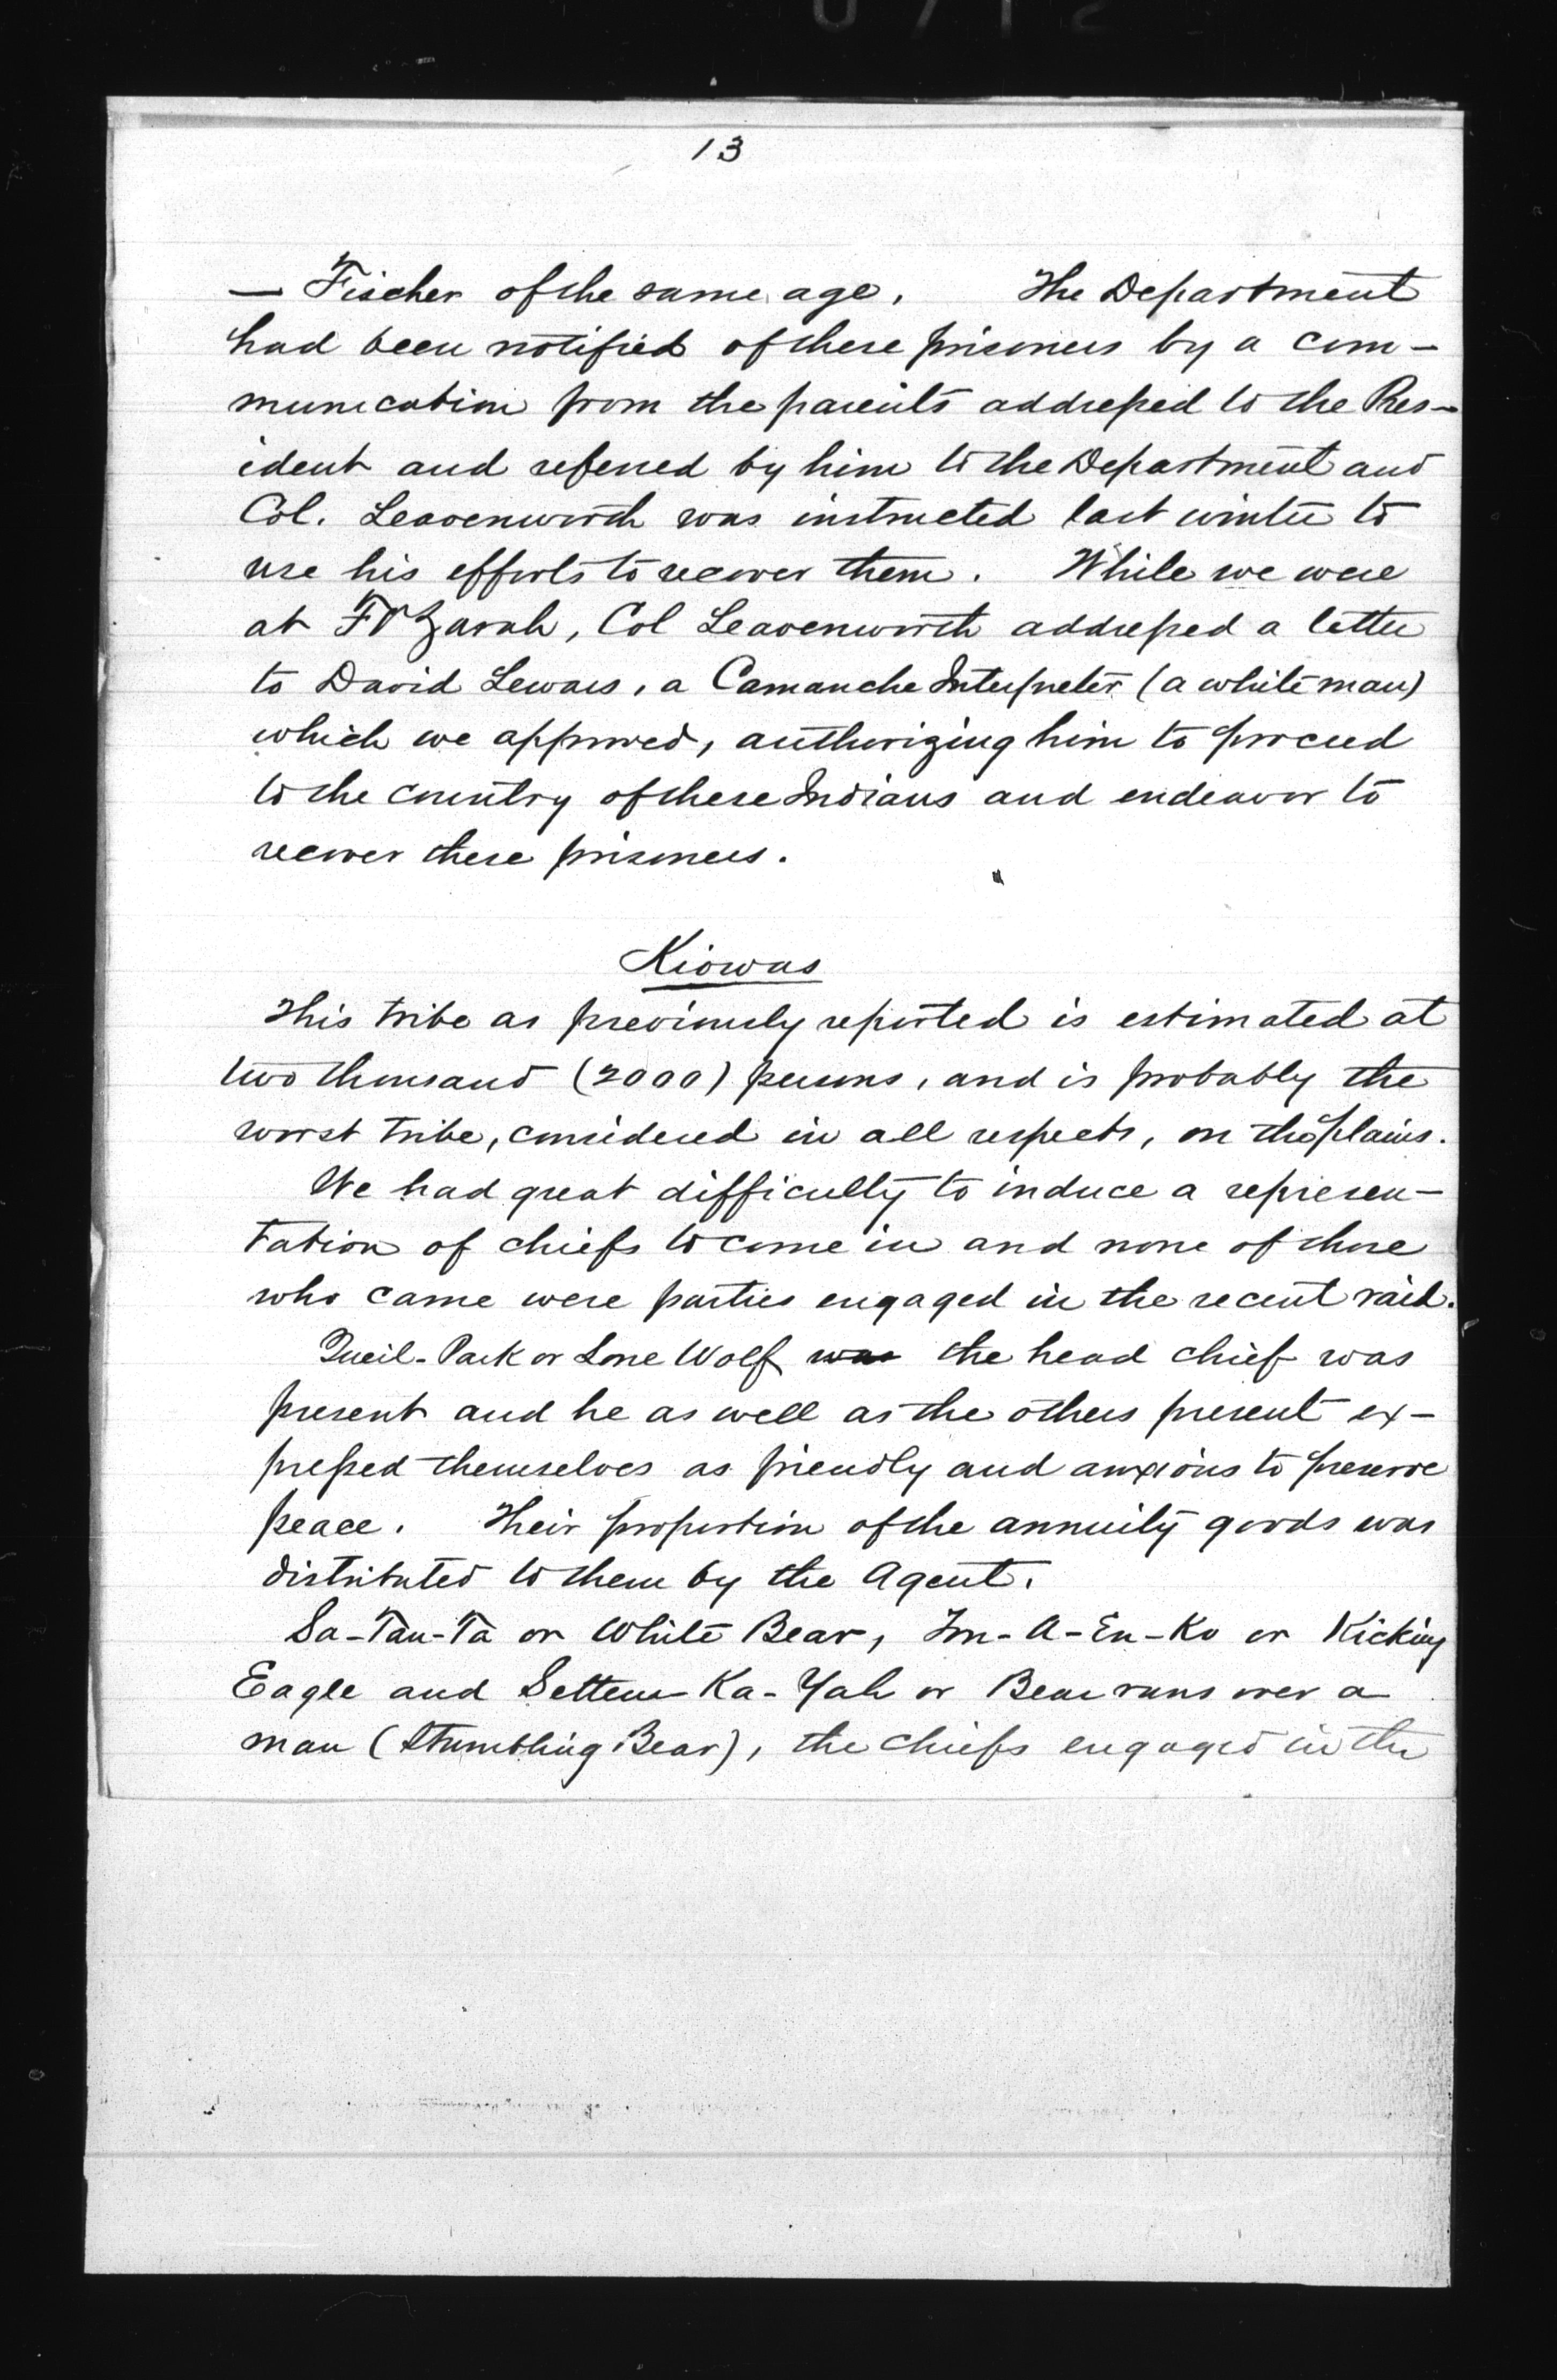 13
— Fischer of the same age. The Department
had been notified of these prisoners by a com-
munication from the parents addressed to the Pres-
ident and referred by him to the Department and
Col. Leavenworth was instructed last winter to
use his efforts to recover them. While we were
at Ft Zarah, Col Leavenworth addressed a letter
to David Lewais, a Camanche Interpreter (a white man)
which we approved, authorizing him to proceed
to the country of these Indians and endeavor to
recover these prisoners.
Kiowas
This tribe as previously reported is estimated at
two thousand (2000) persons, and is probably the
worst tribe, considered in all respects, on the plains.
We had great difficulty to induce a represen-
tation of chiefs to come in and none of those
who came were parties engaged in the recent raid.
Queil-Park or Lone Wolf was the head chief was
present and he as well as the others present ex-
pressed themselves as friendly and anxious to preserve
peace. Their proportion of the annuity goods was
distributed to them by the Agent.
Sa-Tan-Ta or White Bear, -A-En-Ko or Kicking
Eagle and Settem-Ka-Yah or Bear runs over a
man (Stumbling Bear), the chiefs engaged in the